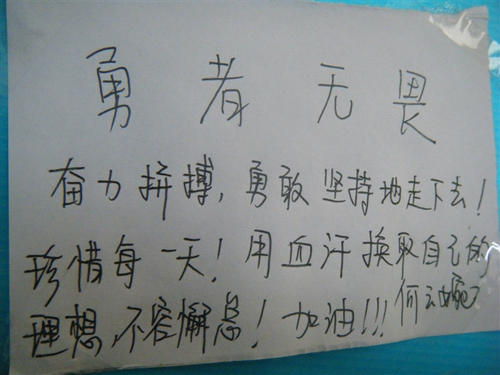 勇者无畏
奋力拼搏,勇敢坚持地走下去!
珍惜每一天!用血汗换取自己的
理想,不容懈怠!加油!!!